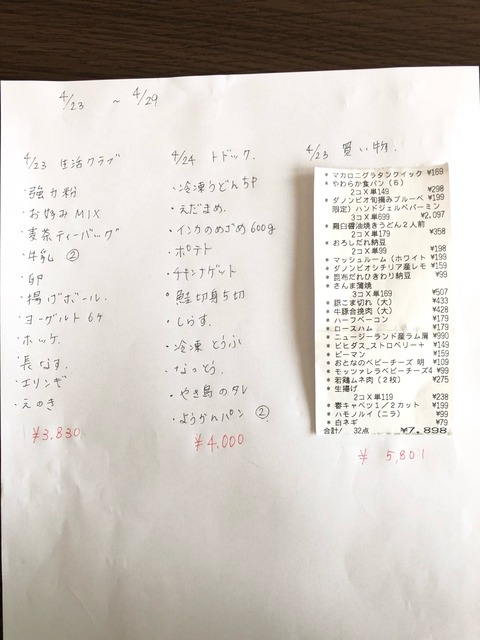 4/23 ~ 4/29
4/23 生活クラブ
・強力粉
・お好みMIX
・麦茶ティーバッグ
・牛乳 ②
・卵
・揚げボール.
・ヨーグルト 6ヶ
・ホッケ.
・長なす.
・エリンギ
・えのき
¥3,830
4/24 トドック.
・冷凍うどん5P
・えだまめ.
・インカのめざめ600g
・ポテト
・チキンナゲット
・鮭切身5切
・しらす.
・冷凍 とうふ
・なっとう.
・やき鳥のタレ
・ようかんパン ②
¥4,000
4/23 買い物.
* マカロニグラタンクイック ¥169
* やわらか食パン(6)
2コX単149 ¥298
* ダノンビオ旬摘みブルーベ ¥199
限定)ハンドジェルペパーミン
3コX単699 ¥2,097
* 醤油焼きうどん2人前
2コX単179 ¥358
* おろしだれ納豆
2コX単99 ¥198
* マッシュルーム(ホワイト ¥199
* ダノンビオシチリア産レモ ¥159
* 昆布だれひきわり納豆 ¥99
* さんま蒲焼
3コX単169 ¥507
* 豚こま切れ(大) ¥433
* 牛豚合挽肉(大) ¥428
* ハーフベーコン ¥179
* ロースハム ¥179
* ニュージーランド産ラム肩 ¥990
* ビヒダス_ストロベリー+ ¥149
* ピーマン ¥159
* おとなのベビーチーズ 明 ¥109
* モッツァレラベビーチーズ4 ¥99
* 若鶏ムネ肉(2枚) ¥275
* 生揚げ
2コX単119 ¥238
* 響キャベツ1/2カット ¥199
* ハモノルイ(ニラ) ¥99
* 白ネギ ¥79
合計/ 32点 ¥7,898
¥ 5,801